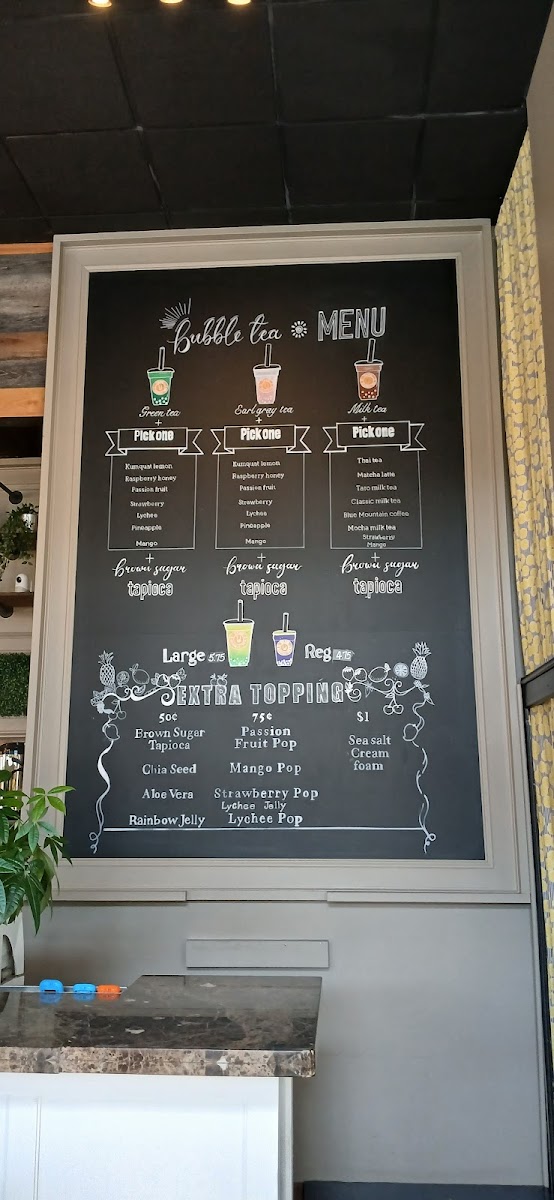 bubble tea MENU
Green tea
+
Pick one
Kumquat lemon
Raspberry honey
Passion fruit
Strawberry
Lychee
Pineapple
Mango
+
Brown sugar
tapioca
Earl gray tea
+
Pick one
Kumquat lemon
Raspberry honey
Passion fruit
Strawberry
Lychee
Pineapple
Mango
+
Brown sugar
tapioca
Milk tea
+
Pick one
Thai tea
Matcha latte
Taro milk tea
Classic milk tea
Blue Mountain coffee
Mocha milk tea
Strawberry
Mango
+
Brown sugar
tapioca
Large 5.75 Reg 4.75
EXTRA TOPPING
50¢
Brown Sugar
Tapioca
Chia Seed
Aloe Vera
Rainbow Jelly
75¢
Passion
Fruit Pop
Mango Pop
Strawberry Pop
Lychee Jelly
Lychee Pop
$1
Sea salt
Cream
foam